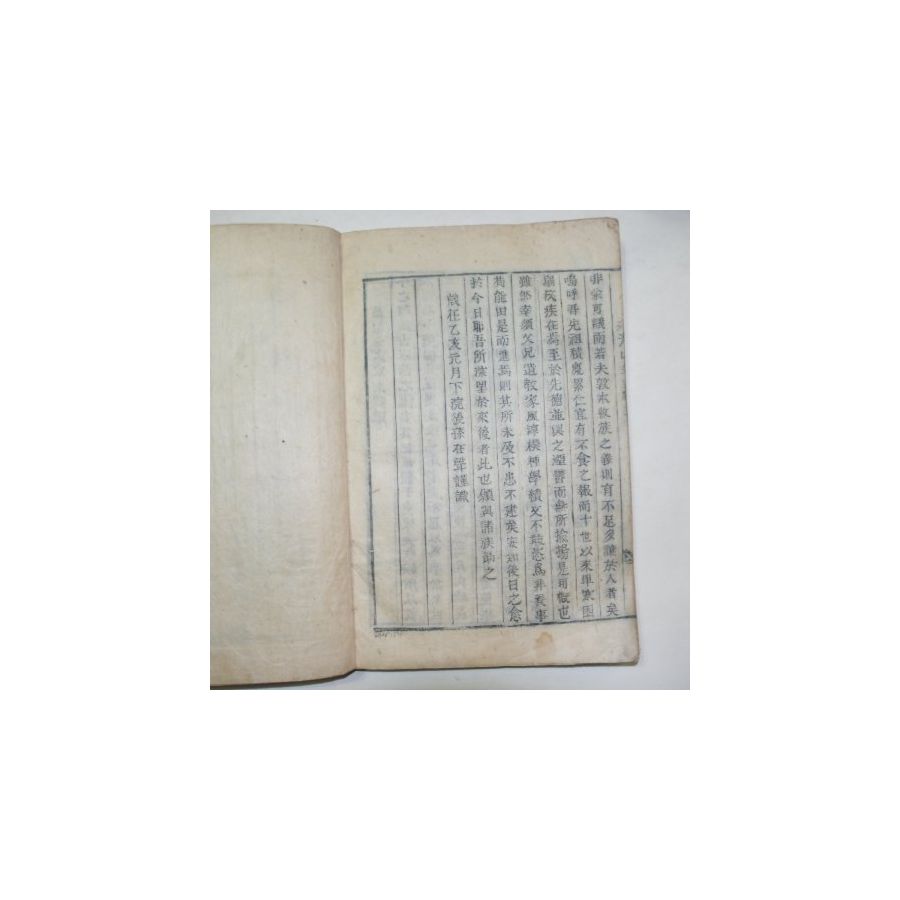 非余可議而若夫敦宗收族之義則有不足多讓於人者矣
嗚呼吾先祖積慶累仁宜有不食之報而十世以來單寒困
窮疾在焉至於先德並與之湮鬱而無所揄揚是可恨也
雖然幸須父兄道教家風淳樸種學積文不敢忝爲非義事
苟能由是而進焉則其所未及不患不建矣安知後日之愈
於今日耶吾所深望於來後者此也願與諸族勖之
歲在乙亥元月下浣後孫在聲謹識